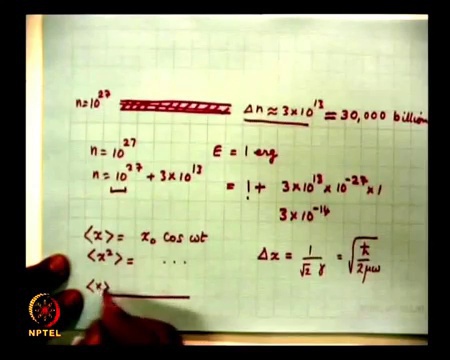 n=10²⁷ Δn ≈ 3×10¹³ = 30,000 billion
n = 10²⁷ E = 1 erg
n = 10²⁷ + 3×10¹³ = 1 + 3×10¹³ × 10⁻²⁷ × 1
3×10⁻¹⁴
⟨x⟩ = x₀ cos ωt
⟨x²⟩ = ... Δx = 1/(√2 γ) = √(ℏ/2μω)
⟨x⟩
NPTEL